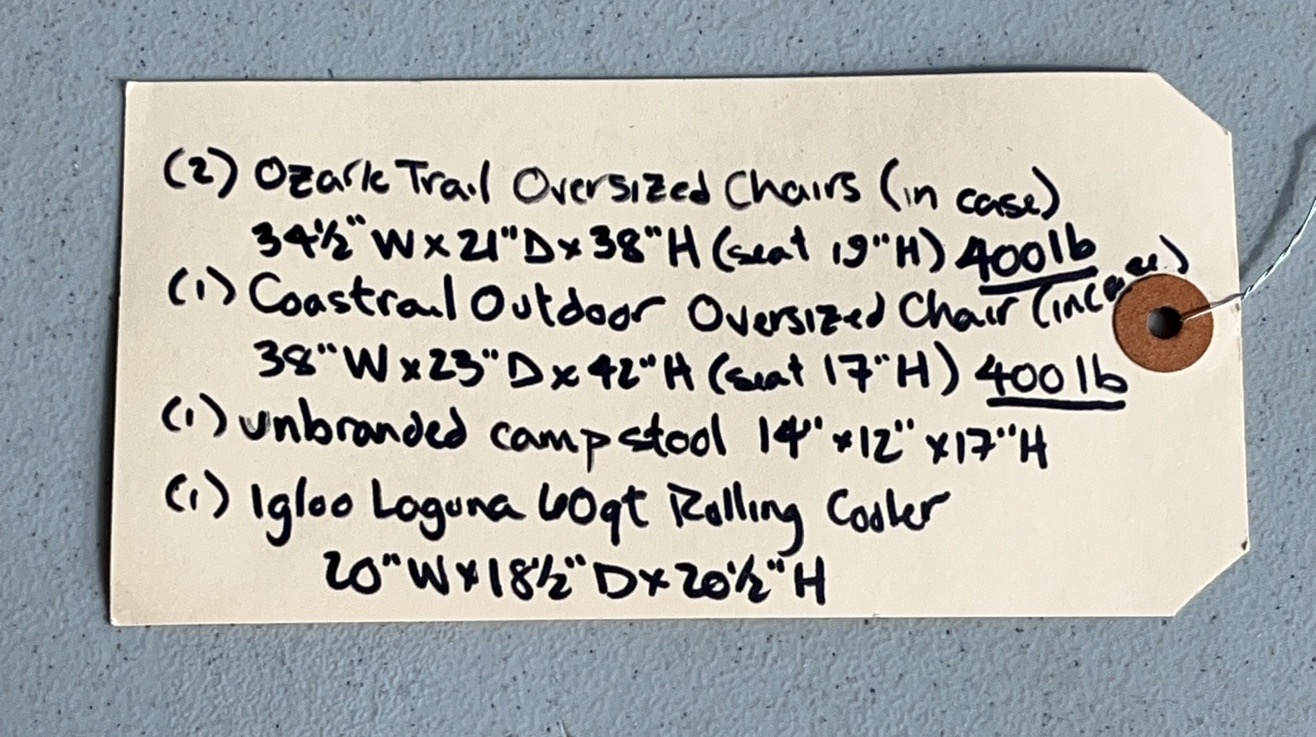 (2) Ozark Trail Oversized Chairs (in case)
34½" W x 21" D x 38" H (seat 19" H) 400 lb
(1) Coastrail Outdoor Oversized Chair (in case)
38" W x 23" D x 42" H (seat 17" H) 400 lb
(1) unbranded camp stool 14" x 12" x 17" H
(1) Igloo Laguna 60qt Rolling Cooler
20" W x 18½" D x 20½" H